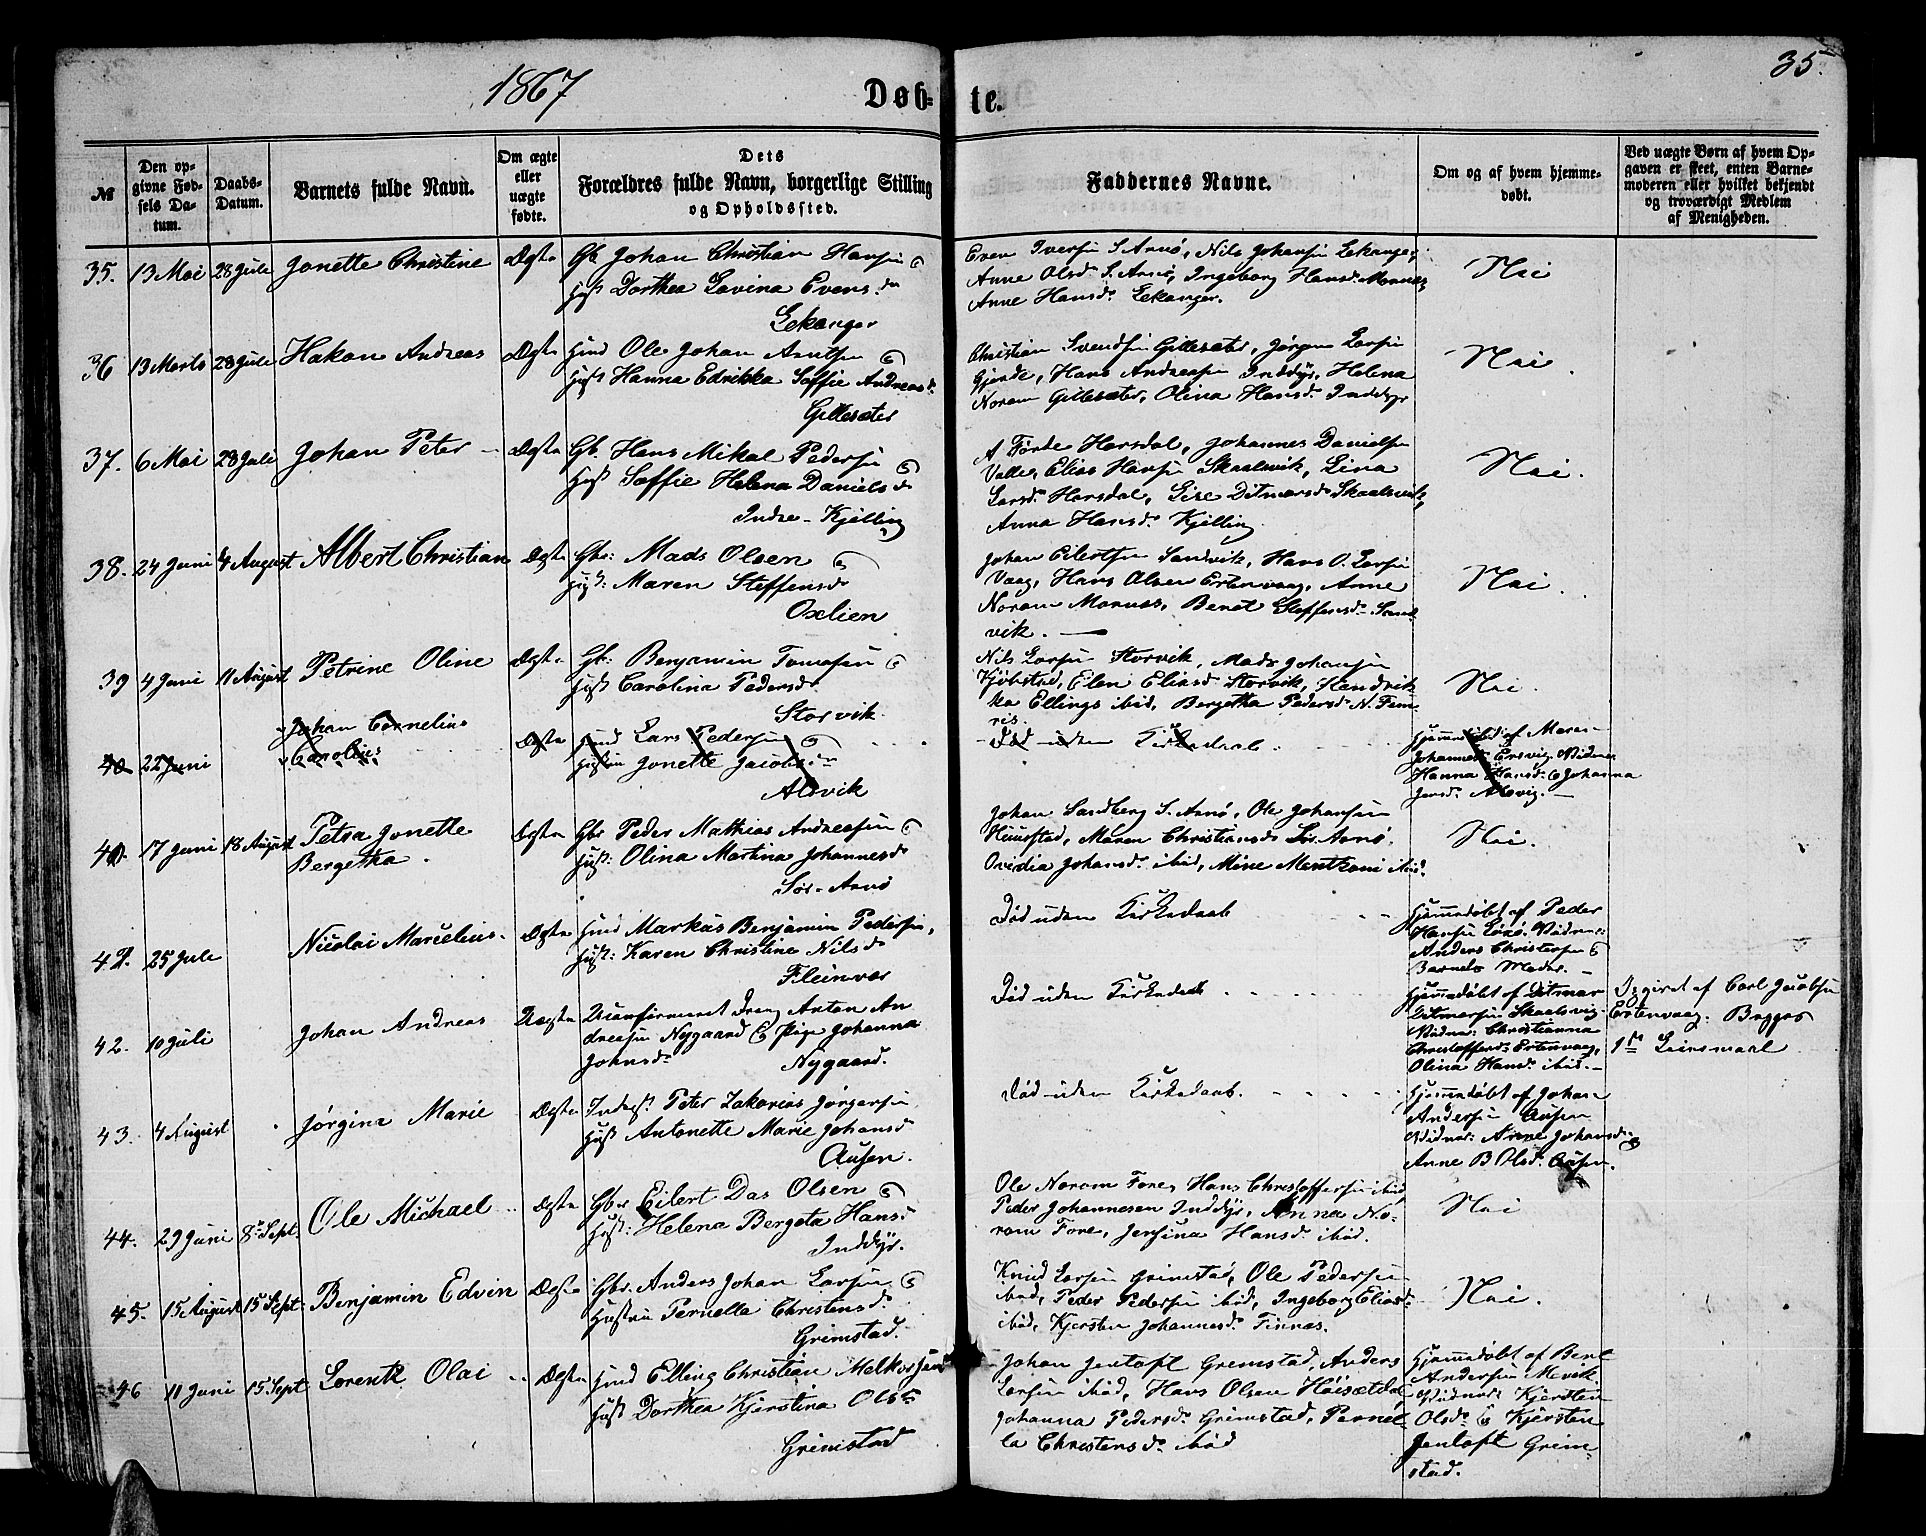 1867
Døb-
te.
35.
№
Den op-
givne Fød-
sels Da-
tum.
Daabs-
Datum.
Barnets fulde Navn.
Om ægte
eller
uægte
fødte.
Dets
Forældres fulde Navn, borgerlige Stilling
og Opholdssted.
Faddernes Navne.
Om og af hvem hjemme-
døbt.
Ved uægte Børn af hvem Op-
gaven er skeet, enten Barne-
moderen eller hvilket bekjendt
og troværdigt Medlem
af Menigheden.
35. 13 Mai 28 Juli Jonette Christine Ægte Gb. Johan Christian Hansen &
Hust Dorthea Lovina Evensd.
Lekanger
Even Iversen S. Arnø, Nils Johansen Lekanger,
Anne Olsd. S. Arnø, Ingeborg Hansd. Mevnes,
Anne Hansd. Lekanger.
Nei
36 13 Marts 28 Juli Hakon Andreas Ægte Hmd Ole Johan Arntsen &
Hust Hanna Edrikka Soffie Andreasd.
Gillesæter
Christian Svendsen Gillesæter, Jørgen Larsen
Gjerde, Hans Andreasen Inddyr, Helena
Norom Gillesæter, Olina Hansd. Inddyr
Nei.
37. 6 Mai 28 Juli Johan Peter Ægte Gb. Hans Mikal Pedersen &
Hust Soffie Helena Danielsd.
Indre-Kjelling
A Førde Horsdal, Johannes Danielsen
Valle, Elias Hansen Skaalsvik, Lina
Larsd. Horsdal, Lise Ditmarsd. Skaalsvik,
Anna Hansd. Kjelling
Nei.
38. 24 Juni 4 August Albert Christian Ægte Gbr: Mads Olsen &
Hust: Maren Steffensd
Oxlien
Johan Eilertsen Sandvik, Hans O. Larsen
Vaag, Hans Olsen Ertenvaag, Anne
Norom Marnes, Beret Steffensd. Sand-
vik.
Nei.
39 4 Juni 11 August Petrine Oline Ægte Gb: Benjamin Tomasen &
Hust Carolina Pedersd.
Storvik.
Nils Larsen Storvik, Mads Johansen
Kjøbstad, Elen Eliasd. Storvik, Hendrik-
ka Ellings ibid, Bergetha Pedersd. N. Fem-
ris.
Nei.
40 22 Juni Johan Cornelius
Carolius
Ægte Hmd Lars Pedersen &
Hustru Jonette Jacobsd.
Alsvik
Død uden Kirkedaab.
Hjemmedøbt af Maren
Johannesd. Ersvig. Vidner
Hanna Hansd. & Johanna
Jensd. Alsvig.
40. 17 Juni 18 August Petra Jonette
Bergetha.
Ægte Gbr Peder Mathias Andreasen &
Hust: Olina Martina Johannesd.
Sør-Arnø
Johan Sandberg S. Arnø, Ole Johansen
Huustad, Maren Christiansd. Sør Arnø,
Ovidia Johansd. ibid, Mine Mentzoni ibid.
Nei.
41. 25 Juli Nicolai Marcelius. Ægte Hmd Markus Benjamin Pedersen,
Hust: Karen Christine Nilsd
Fleinvær
Død uden Kirkedaab
Hjemmedøbt af Peder
Hansen Sørø. Vidner:
Anders Christensen &
Barnets Moder.
42. 10 Juli Johan Andreas Uægte Ukonfirmeret Dreng Anton An
dreasen Nygaard & Pige Johanna
Johnsd.
Nygaard.
Død uden Kirkedaab
Hjemmedøbt af Ditmar
Ditmarsen Skaalsvig.
Vidner: Christianna
Christoffersd. Ertenvaag,
Olina Hansd. ibid.
Opgivet af Carl Jacobsen
Ertenvaag. Begges
1ste Leiermaal
43. 4 August Jørgine Marie Ægte Inderst Peter Zakarias Jørgensen
Hust Antonette Marie Johansd
Ausen.
Død uden Kirkedaab.
Hjemmedøbt af Johan
Andersen Ausen
Vidner: Anne Johansd. &
Anne B. Olsd. Ausen.
44. 29 Juni 8de Sept. Ole Michael Ægte Gbr Eilert Das Olsen &
Hust: Helena Bergeta Hans:
Inddyr.
Ole Norom Fore, Hans Christoffersen ibid,
Peder Johannesen Inddyr, Anna No-
rom Fore, Jensina Hansd. ibid.
Nei
45. 15 August 15 Sept. Benjamin Edvin Ægte Gbr. Anders Johan Larsen &
Hustru Pernella Christensd.
Grimstad.
Knud Larsen Grimstad, Ole Pedersen
ibid, Peder Pedersen ibid, Ingeborg Eliasd.
ibid, Kjersten Johannesd. Finnes.
Nei.
46 11 Juni 15 Sept Lorentz Olai Ægte Hmd Elling Christian Melkorsen
Hust Dorthea Kjerstina Olsd
Grimstad
Johan Jentoft Grimstad, Anders
Larsen ibid, Hans Olsen Høisætdal,
Johanna Pedersd. Grimstad, Pernel-
la Christensd. ibid
Hjemmedøbt af Bent
Andersen Mevik
Vidner Kjersten
Olsd. & Kjersten
Jentoft Grim-
stad.